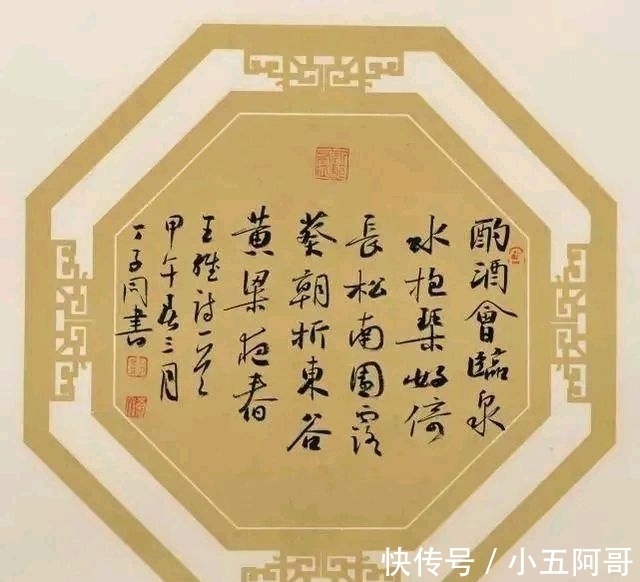 酌酒會臨泉
水抱琴好倚
長松南園露
葵朝折東谷
黄梁夜舂
王維诗一首
甲午春三月
丁子同書
快传号 / 小五阿哥